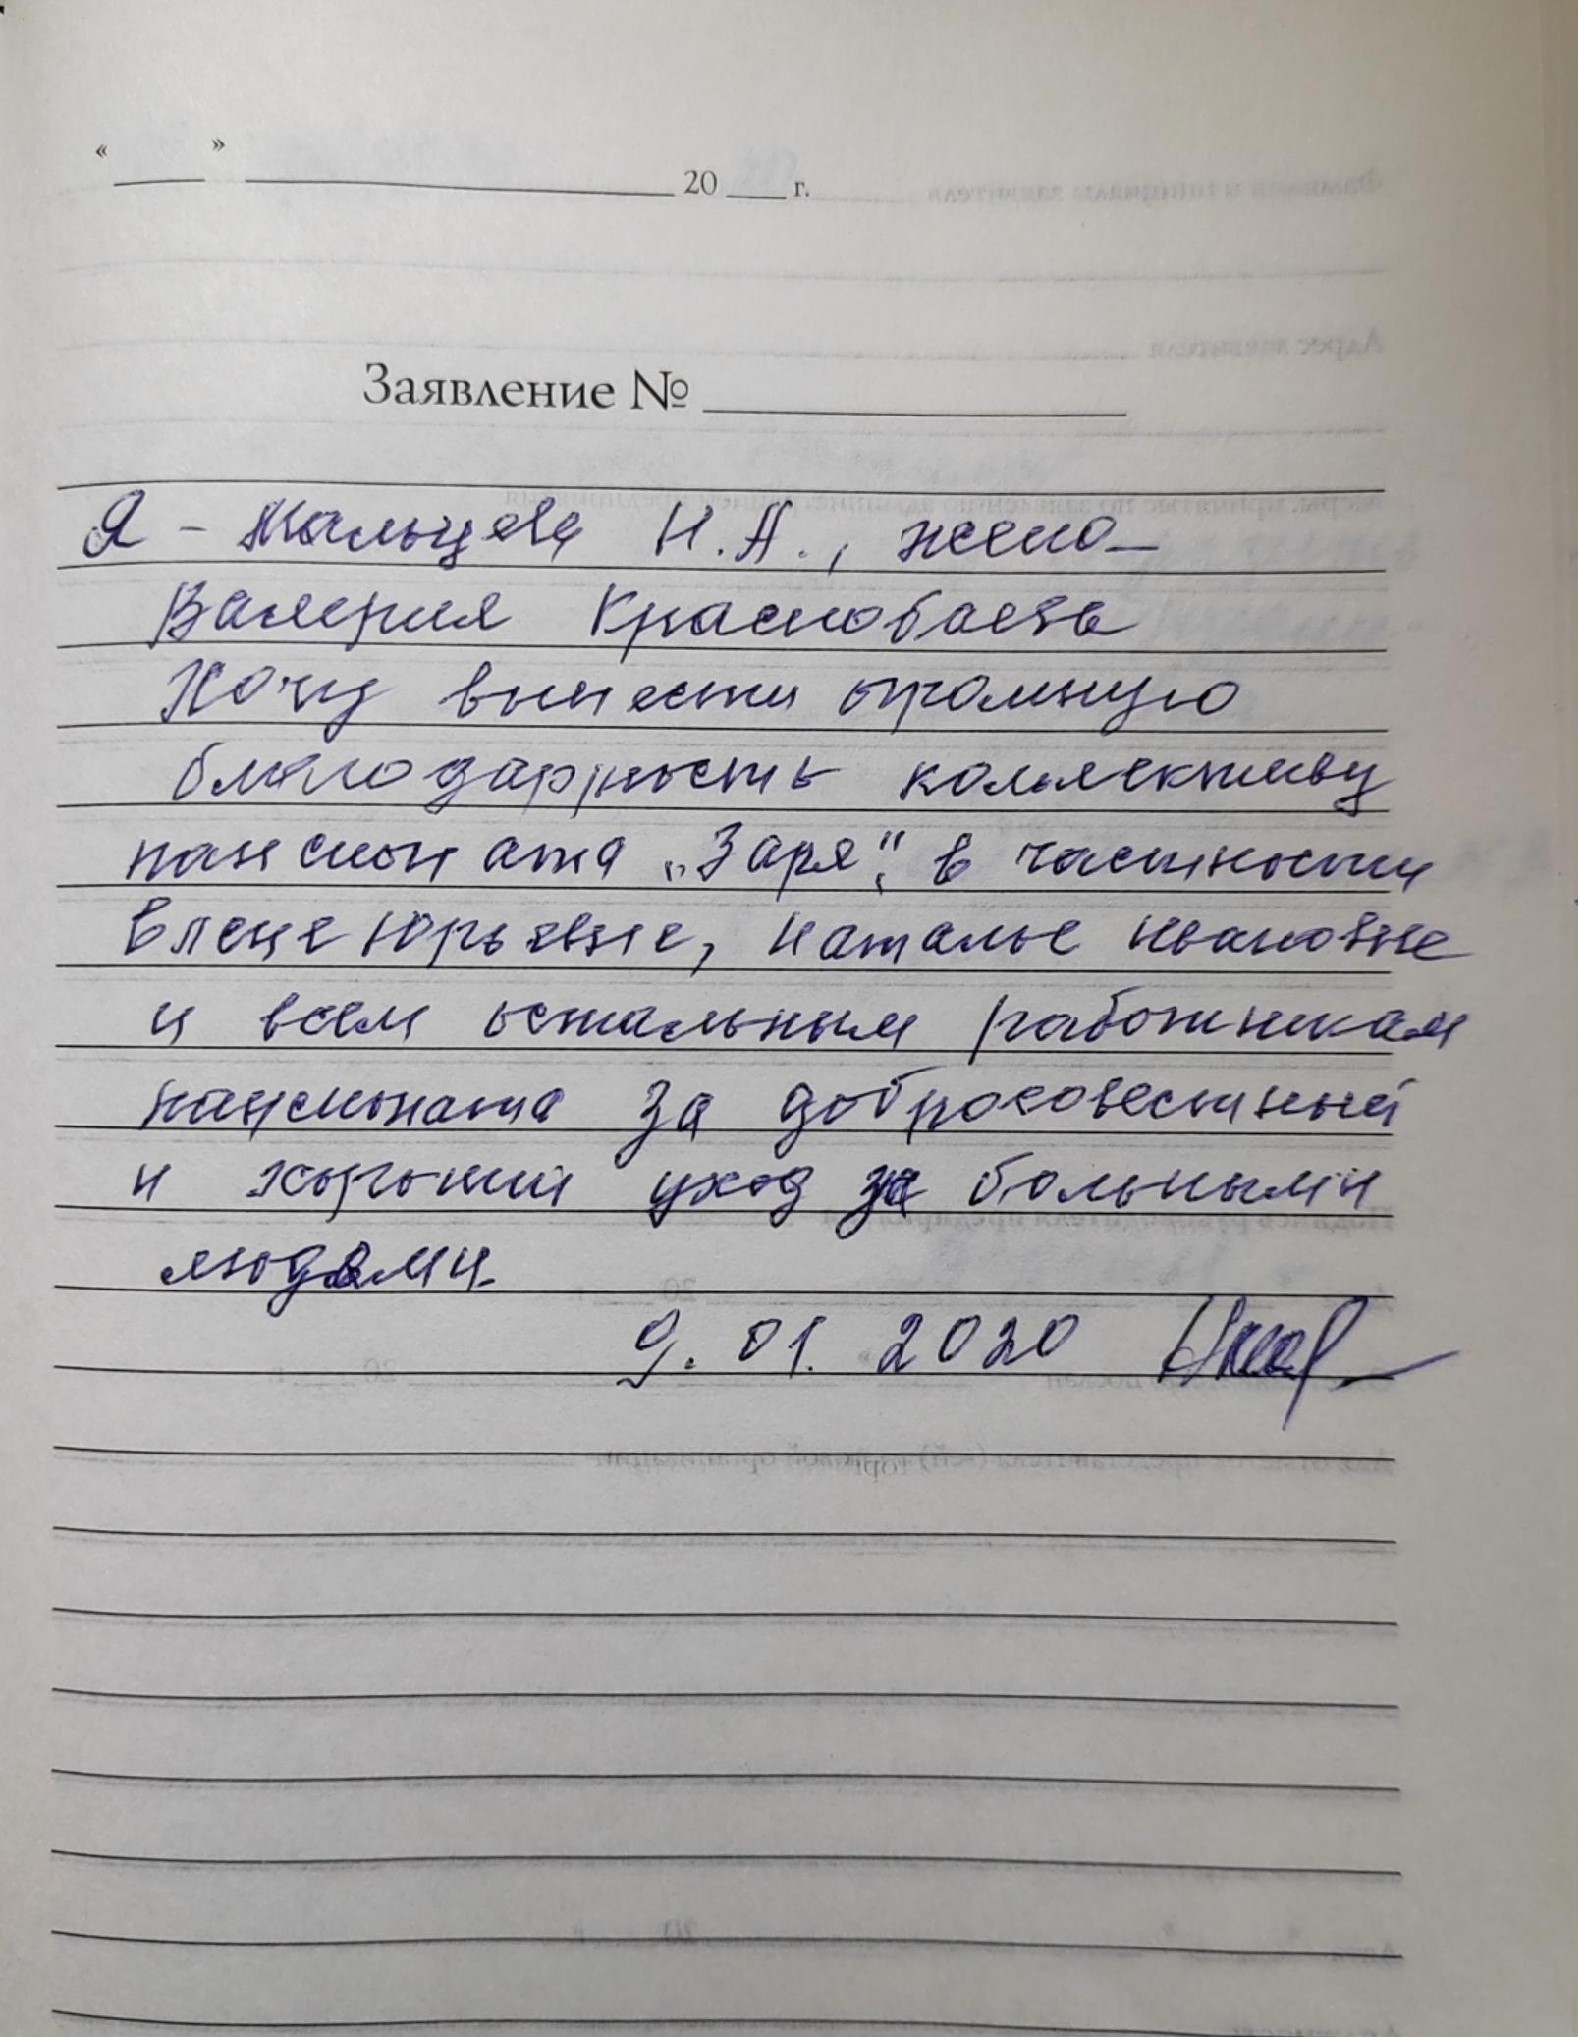 « » 20 г.
Заявление №
Я - Мальцева Н.А., жена
Валерия Краснобаева
Хочу вынести огромную
благодарность коллективу
пансионата „Заря“, в частности
Елене Юрьевне, Наталье Ивановне
и всем остальным работникам
пансионата за добросовестный
и хороший уход за больными
людьми.
9.01.2020